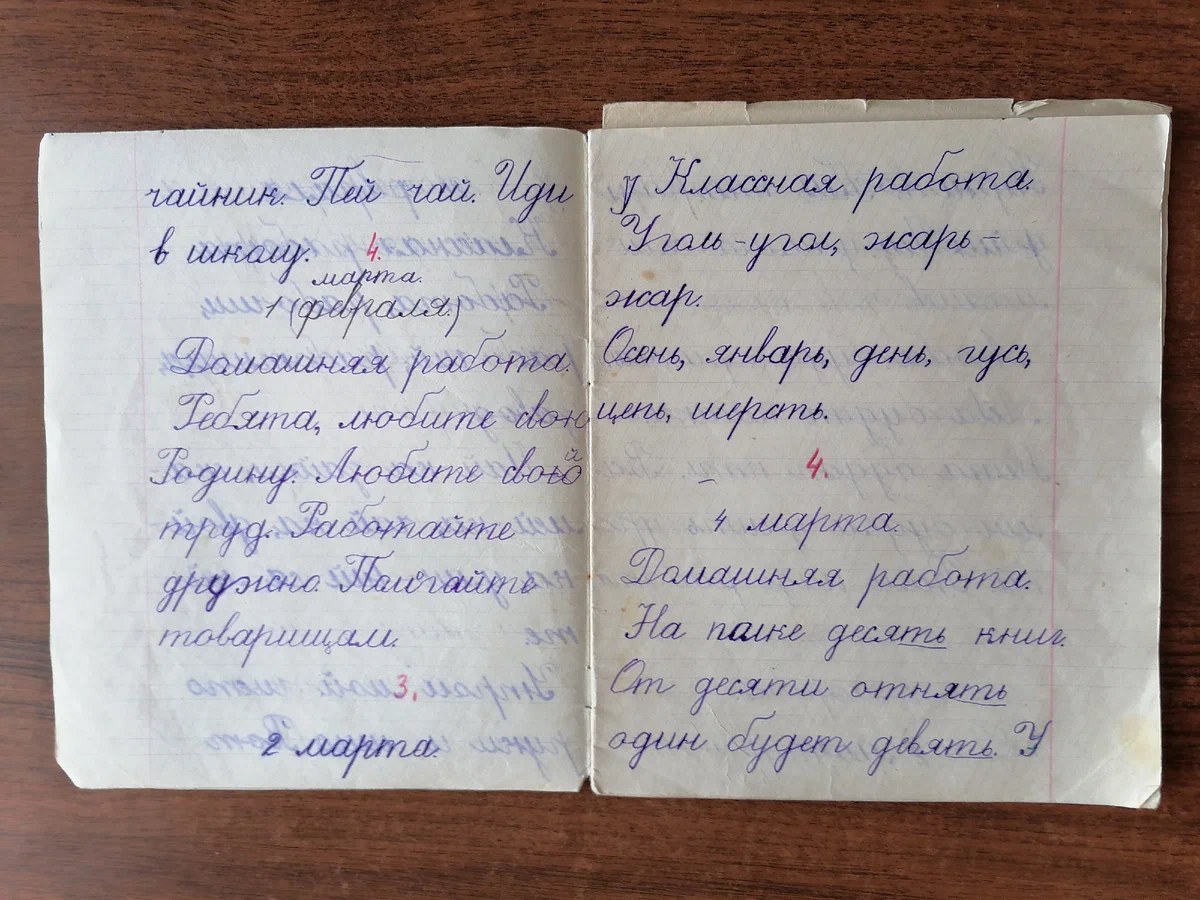 чайник. Пей чай. Иди
в школу. 4.
марта.
1 (февраля.)
Домашняя работа.
Ребята, любите свою
Родину. Любите свой
труд. Работайте
дружно. Помогайте
товарищам.
3.
2 марта.
у Классная работа.
Уголь-угол, жарь-
жар.
Осень, январь, день, гусь,
цепь, шерсть.
4.
4 марта.
Домашняя работа.
На полке десять книг.
От десяти отнять
один будет девять. У